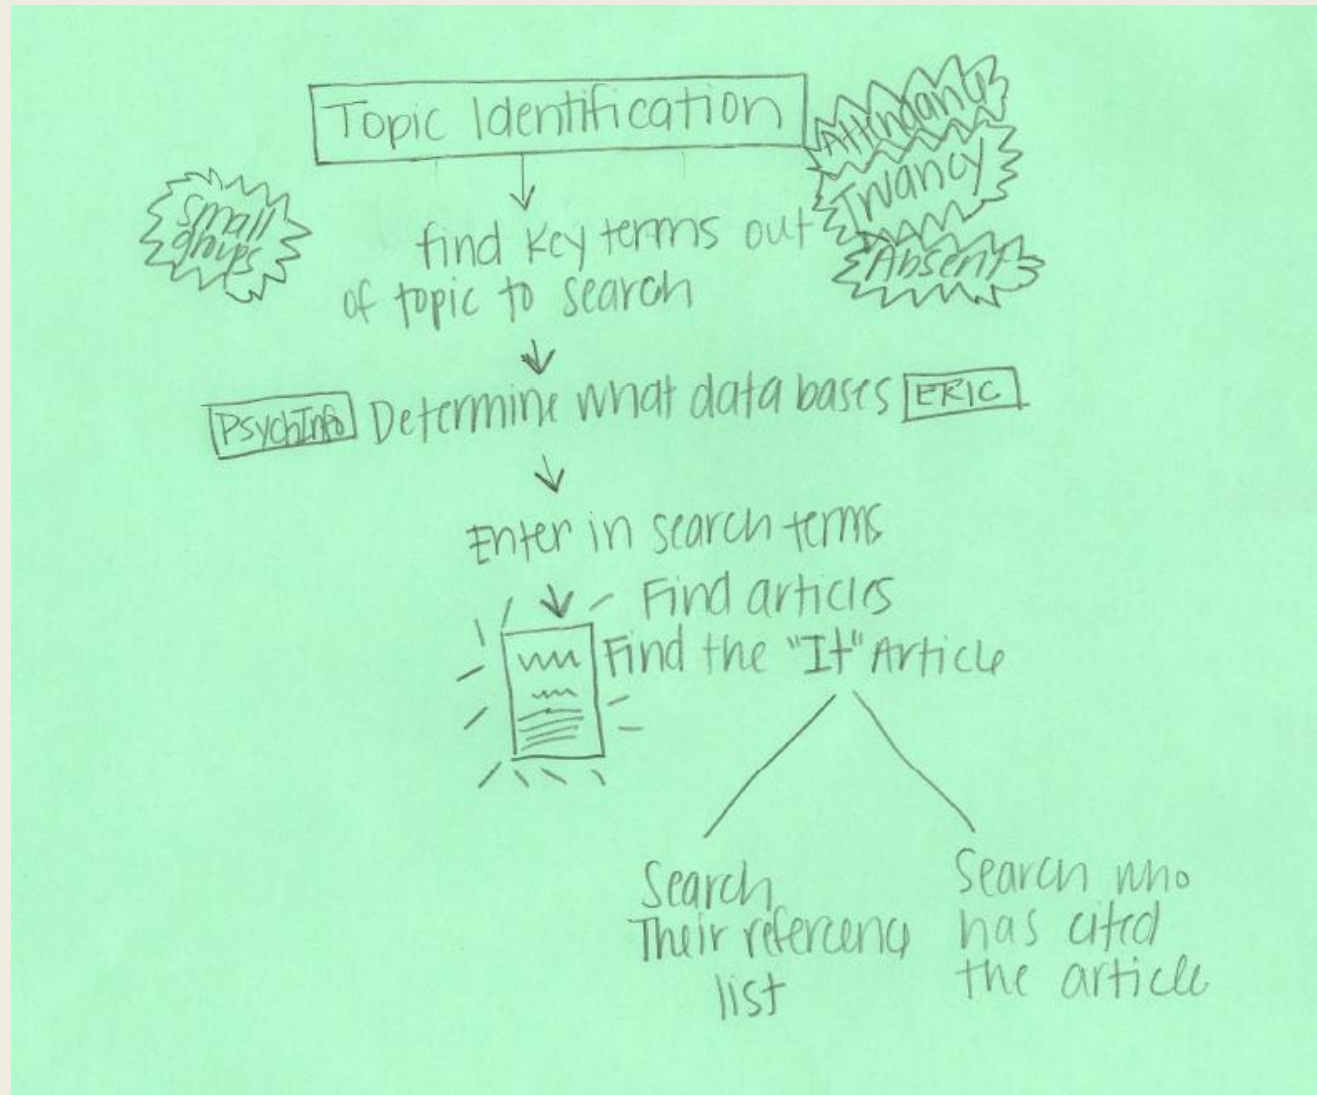 Topic Identification
Attendance
Truancy
Absent
small
groups
find key terms out
of topic to search
PsychInfo Determine what data bases ERIC
Enter in search terms
Find articles
Find the "It" Article
Search
Their referceence
list
Search who
has cited
the article